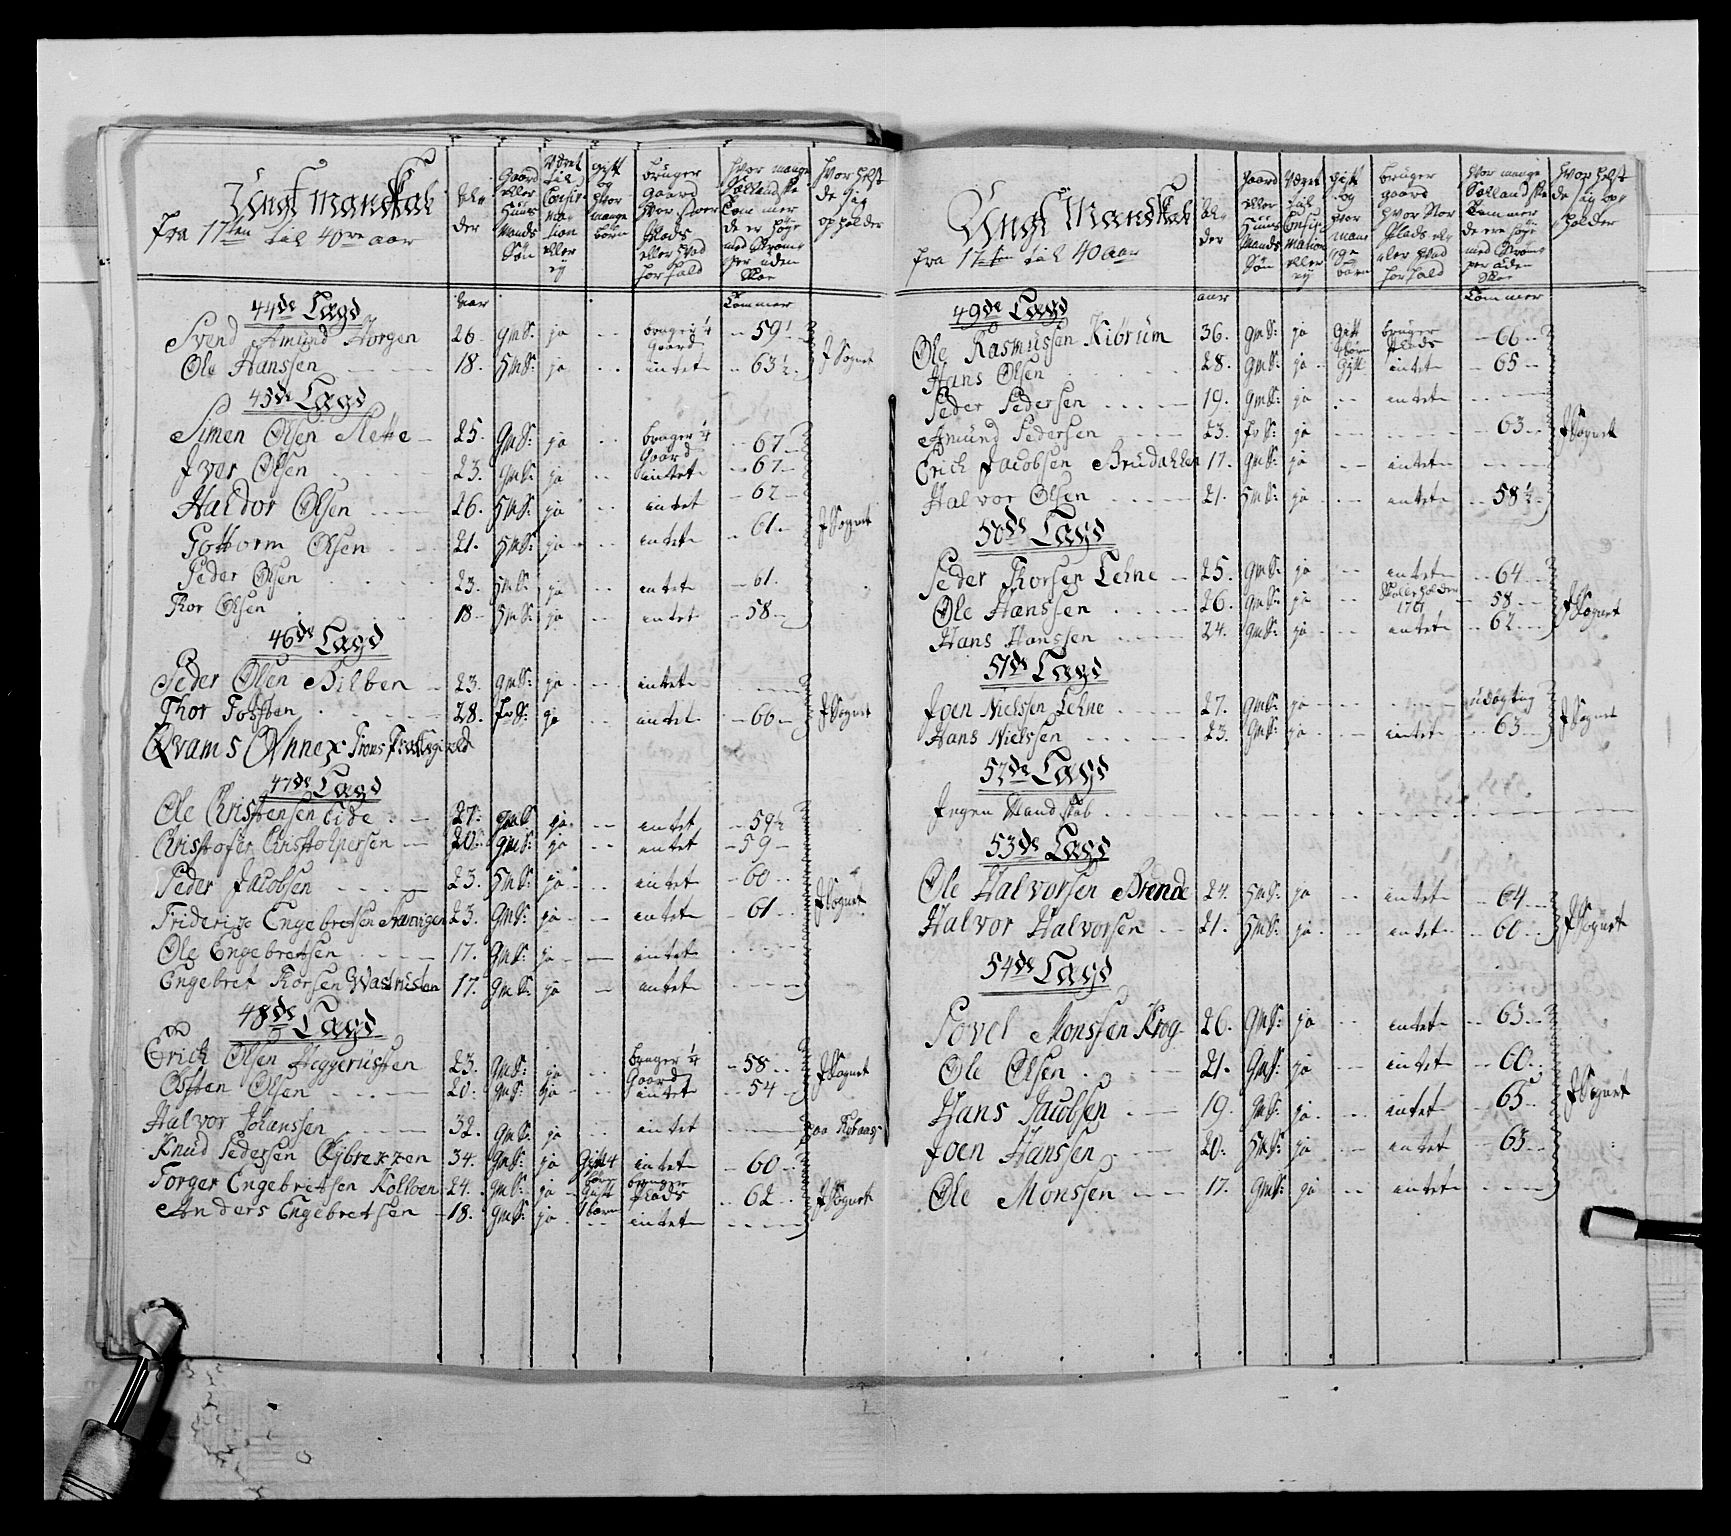 Ungt Mandskab
fra 17ten til 40ve aar
Al-
der
Gaard
eller
Huus
Mands
Søn
Været
til
Confir-
ma-
tion
eller
ej
Gift
og
hvor
mange
børn
bruger
Gaard
hvor stoer
Plads
eller hvad
forfald
hvor mange
Sællandske
Tommer
de er høye
med Strømper
uden
Skoe
hvor helst
de sig
opholder
44de Lægd Aar Tommer
Svend Amund Horgen 26. GmS: ja bruger ¼ Gaard 59
Ole Hanssen 18. HmS: ja intet 63½ J Sognet
45de Lægd
Simen Olsen Slette 25. GmS: ja bruger ¼ Gaard 67
Jver Olsen 23. GmS: ja intet 67
Haldor Olsen 26. HmS: ja intet 62
Gottorm Olsen 21. HmS: ja intet 61 J Sognet
Peder Olsen 23. HmS: ja intet 61
Thor Olsen 18 HmS: ja intet 58
46de Lægd
Peder Olsen Bilben 23. GmS: ja intet
Thor Tosten 28. ja intet 66 J Sognet
Qvams Annex Frons Præstegield
47de Lægd
Ole Christensen Eide 27. GmS ja intet 59½
Christofer Christophersen 20 GmS: ja intet 59
Peder Jacobsen 23. HmS: ja intet 60
Friderize Engebretsen 23. GmS: ja intet 61 J Sognet
Ole Engebretsen 17. GmS: ja intet
Engebret Thorsen 17. GmS: ja intet
48de Lægd
Erich Olsen Heggerusten 23. GmS: ja bruger ¼ Gaard 58 J Sognet
Østen Olsen 20. GmS: ja intet 54
Halvor Johanssen 32. GmS: ja intet paa
Knud Pedersen 34. GmS: ja Gift 4 bør intet 60
Torger Engebretsen Kolloen 24. GmS: ja Gift 1 barn bruger Plads 62 J Sognet
Anders Engebretsen 18. GmS: ja intet
Ungt Mandskab
fra 17ten til 40 aar
Al-
der
Gaard
eller
Huus
Mands
Søn
Været
til
Confir-
mation
eller
ej
Gift
og
hvor
man-
ge
børn
bruger
gaard
hvor stor
Plads el-
ler hvad
forfald
hvor mange
Sællandske
Tommer
de ere høye
med Strøm-
per uden
Skoe
hvor helst
de sig op-
holder
49de Lægd aar Tommer
Ole Rasmussen Kiørum 36. GmS: ja Gift børn bruger Plads 66
Hans Olsen 28. GmS: ja Gift intet 65
Peder Pedersen 19. GmS: ja intet
Amund Pedersen 23. ja 63 J Sognet
Erich Jacobsen Brudahlen 17. GmS: ja intet
Halvor Olsen 21. HmS: ja intet 58½
50de Lægd
Peder Thorsen Lehne 25. GmS: ja intet 64
Ole Hanssen 26. GmS: ja 58 J Sognet
Hans Hanssen 24. GmS: ja intet 62
51de Lægd
Joen Nielssen Lehne 27. GmS: ja udøgtig
Hans Nielssen 23. GmS: ja intet 63 J Sognet
52de Lægd
Jngen Mandskab
53de Lægd
Ole Halvorsen Brende 24. HmS: ja intet 64
Halvor Halvorsen 21. HmS: ja intet 60 J Sognet
54de Lægd
Povel Monssen Krog 26. GmS: ja intet 63
Ole Olsen 21. GmS: ja intet 60
Hans Jacobsen 19. GmS: ja intet 65 J Sognet
Joen Hanssen 20. HmS: ja intet 63
Ole Monssen 17. GmS: ja intet